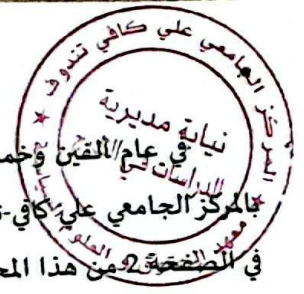 المركز الجامعي علي كافي تندوف
نيابة مديرية
الدراسات في
معهد الحقوق و العلوم
في عام ألفين وخمس
بالمركز الجامعي علي كافي-ت
في الصفحة 2 من هذا المح